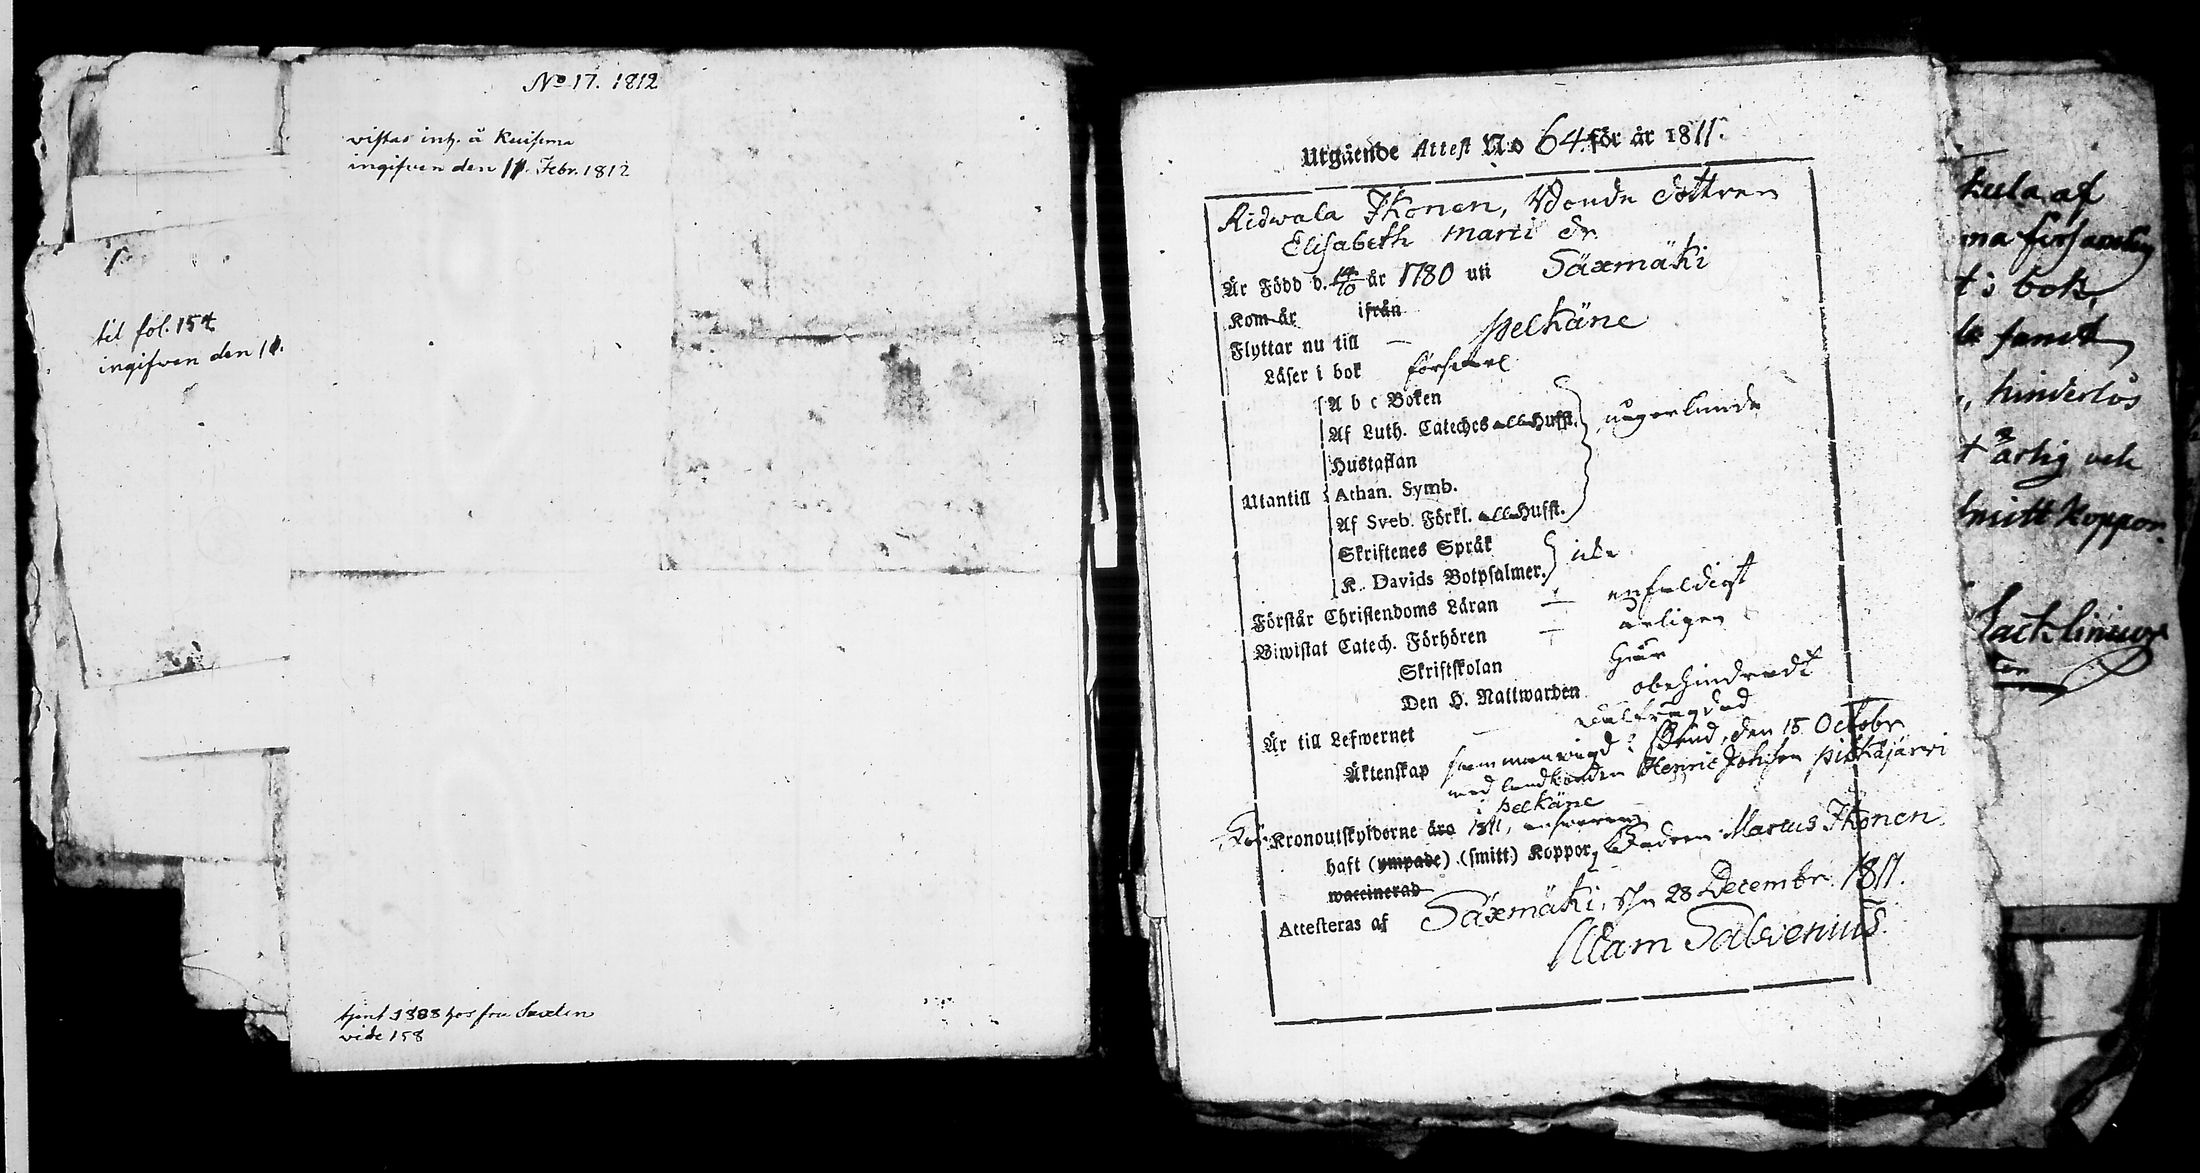 No 17. 1812
vistas inh. å Kuisema
ingifven den 11. Febr. 1812
til fol. 154
ingifven den 11.
tjent 1808 hos fru
vide 158
Utgående Attest No 64 för år 1811.
Ridwala Ikonen, Bonde dottren
Elisabeth Marti dr.
Är Född d. 10 år 1780 uti Säxmäki
Kom år ifrån
Flyttar nu till — Pelkäne
Läser i bok försvarl
A b c Boken
Af Luth. Cateches alla Hufst. någorlunda
Hustaflan
Utantill Athan. Symb.
Af Sveb. Förkl. alla Hufst.
Skriftenes Språk
K. Davids Botpsalmer. icke
Förstår Christendoms Läran — enfaldigt
Biwistat Catech. Förhören — årligen
Skriftskolan här
Den H. Nattwarden obehindradt
Är till Lefwernet — wälfrägdad
Äktenskap sammanvigd i Brud, den 15 Octobr
med landbonden Henric Johsson Pitkäjärwi
i Pelkäne
För Kronoutskylderne äro 1811, answarar
haft (ympade) (smitt) Koppor, Fadren Martus Ikonen.
waccinerad
Attesteras af Säxmäki, den 28 Decembr. 1811.
Adam Salvenius
kula af
ma församling
t i bok,
samt
, hinderlös
t ärlig och
smitt Koppor.
Lacklinius